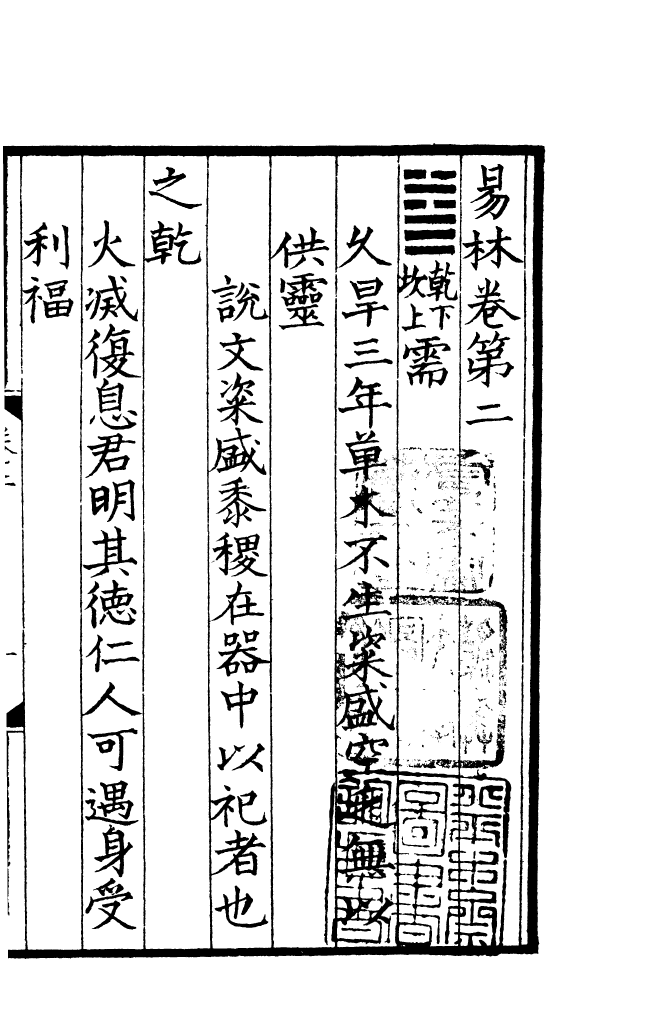 易林卷第二
乾下坎上需
久旱三年草木不生粢盛空乏無以
供靈
說文粢盛黍稷在器中以祀者也
之乾
火滅復息君明其德仁人可遇身受
利福